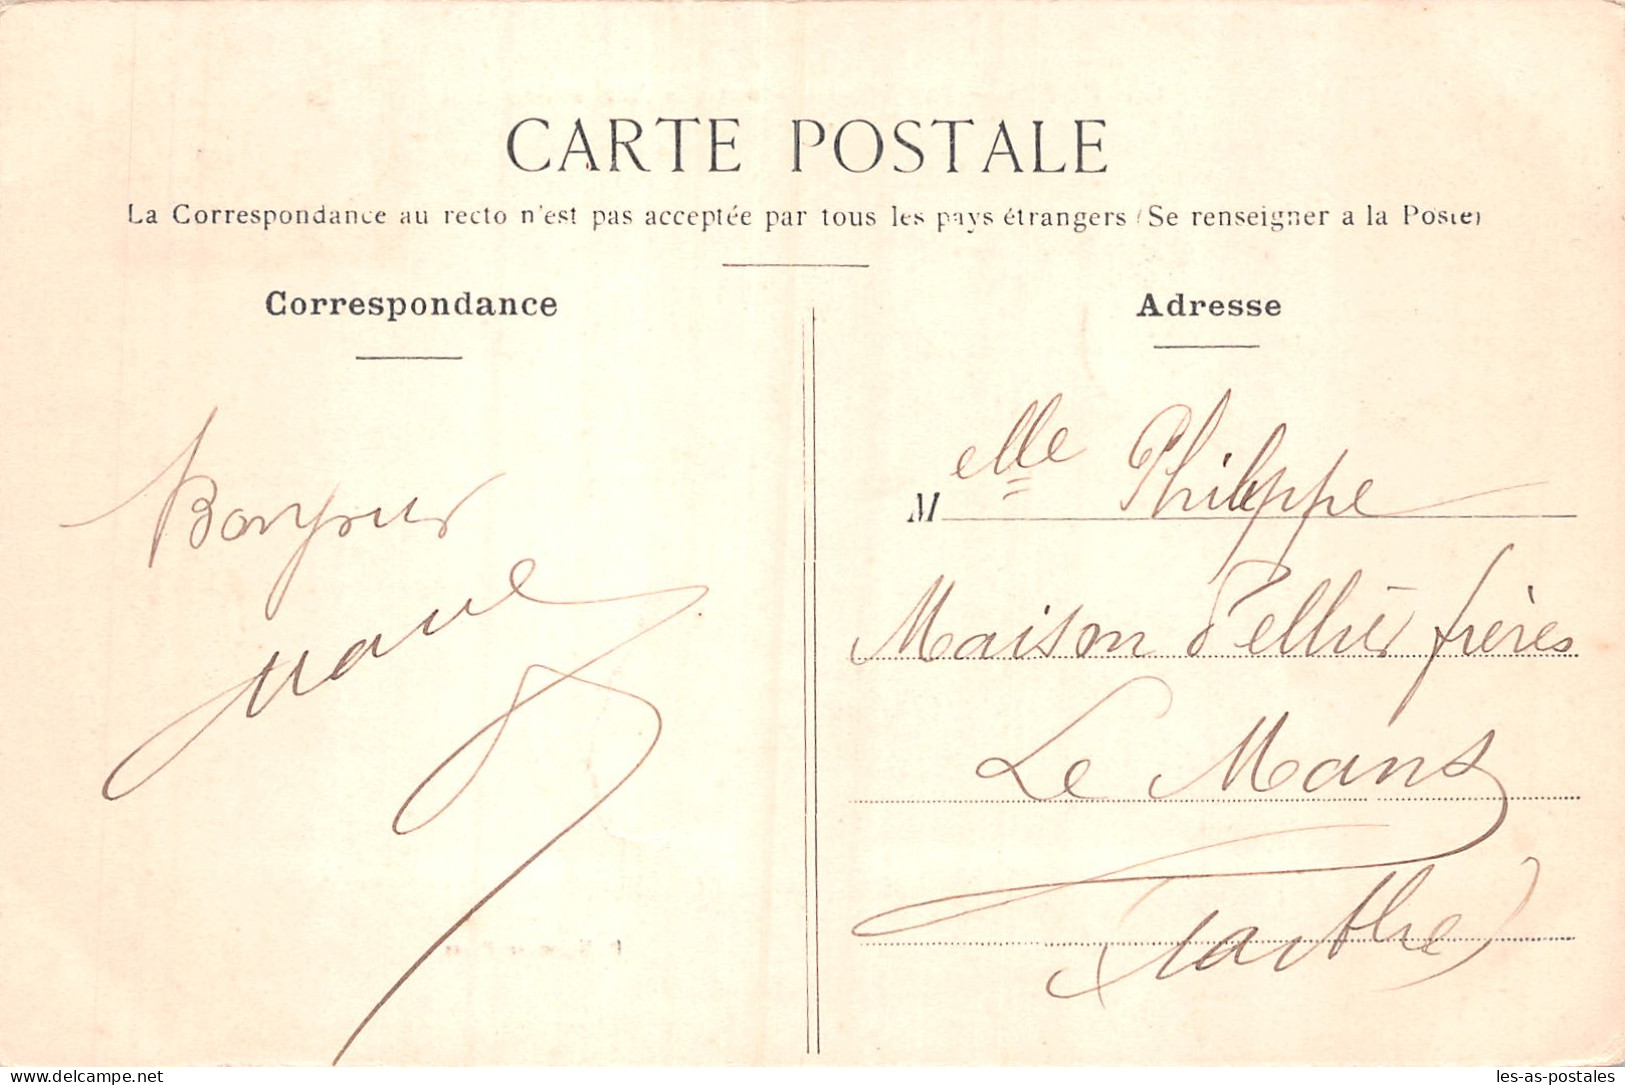 CARTE POSTALE
La Correspondance au recto n'est pas acceptée par tous les pays étrangers (Se renseigner a la Poste)
Correspondance
Bonjour
Adresse
Melle Philippe
Maison Pellier frères
Le Mans
(Sarthe)
les-as-postales